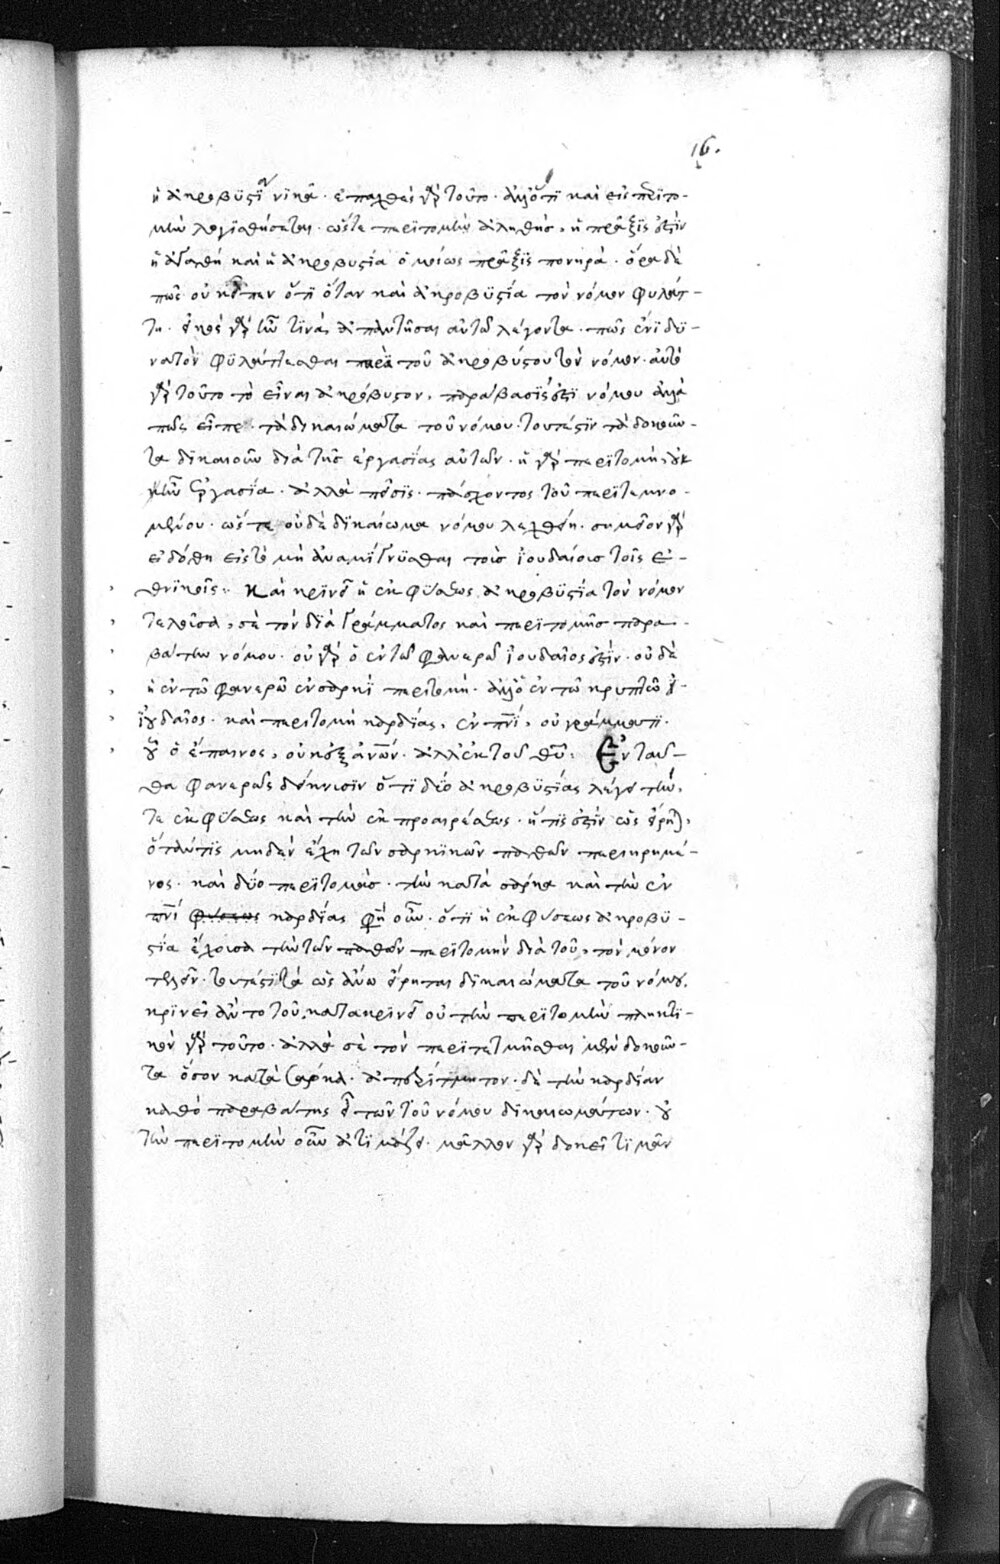 16.
ἡ ἀκροβυστίαν νικᾶ. ἐπαχθὲς γὰρ τοῦτο. ἀλλ' ὅτι καὶ εἰς περιτο-
μὴν λογισθήσεται. ὥστε περιτομὴ ἀληθὴς, ἡ πρᾶξις ἐστὶν
ἡ ἀγαθὴ καὶ ἡ ἀκροβυστία ὁμοίως πρᾶξις πονηρά. ὅρα δὲ
πῶς οὐκ εἶπεν ὅτι ὅταν καὶ ἀκροβυστία τὸν νόμον φυλάτ-
τη. εἰκὸς γὰρ ἦν τινὰ ἀπαντῆσαι αὐτῶ λέγοντα. πῶς ἔνι δυ-
νατὸν φυλάττεσθαι παρὰ τοῦ ἀκροβύστου τὸν νόμον. αὐτὸ
γὰρ τοῦτο τὸ εἶναι ἀκρόβυστον, παράβασις ἐστὶ νόμου ἀλλὰ
πῶς εἶπε. τὰ δικαιώματα τοῦ νόμου. τουτέστιν τὰ δοκοῦν-
τα δικαιοῦν διὰ τῆς ἐργασίας αὐτῶν. ἡ γὰρ περιτομὴ, οὐκ
ἦν ἐργασία. ἀλλὰ πάσις. πάσχοντος τοῦ περιτεμνο-
μένου. ὥστε οὐδὲ δικαίωμα νόμου λεχθείη. σημεῖον γὰρ
ἐδόθη εἰς τὸ μὴ ἀναμίγνυσθαι τοὺς ἰουδαίους τοῖς ἐ-
θνικοῖς: Καὶ κρινεῖ ἡ ἐκ φύσεως ἀκροβυστία τὸν νόμον
τελοῦσα, σὲ τὸν διὰ γράμματος καὶ περιτομῆς παρα-
βάτην νόμου. οὐ γὰρ ὁ ἐν τῶ φανερῶ ἰουδαῖος ἐστὶν. οὐδὲ
ἡ ἐν τῶ φανερῶ ἐν σαρκὶ περιτομή. ἀλλ' ὁ ἐν τῶ κρυπτῶ ἰ-
ουδαῖος. καὶ περιτομὴ καρδίας, ἐν πνι, οὐ γράμματι.
οὗ ὁ ἔπαινος, οὐκ ἐξ ἀνων. ἀλλ' ἐκ τοῦ θυ: Ἐνταῦ-
θα φανερῶς δείκνυσιν ὅτι δύο ἀκροβυστίας λέγει τήν,
τε ἐκ φύσεως καὶ τὴν ἐκ προαιρέσεως. ἥτις ἐστὶν ὡς εἴρηται,
ὅταν τις μηδὲν ἔχη τῶν σαρκικῶν παθῶν περικρημέ-
νος. καὶ δύο περιτομὰς. τὴν κατὰ σάρκα καὶ τὴν ἐν
πνι φύσεως καρδίας φησὶ οὖν. ὅτι ἡ ἐκ φύσεως ἀκροβυ-
στία ἔχουσα τὴν τῶν παθῶν περιτομὴν διὰ τοῦ, τὸν νόμον
τελεῖν. τουτέστι τὰ ὡς ἄνω εἴρηται δικαιώματα τοῦ νόμου.
κρινεῖ ἀντὶ τοῦ, κατακρινεῖ οὐ τὴν περιτομὴν πληκτι-
κὸν γὰρ τοῦτο. ἀλλὰ σὲ τὸν περιτετμῆσθαι μὲν δοκοῦν-
τα ὅσον κατὰ σάρκα. ἀπερίτμητον δὲ τὴν καρδίαν
καθὸ παραβάτης εἶ τῶν τοῦ νόμου δικαιωμάτων. οὐ
τὴν περιτομὴν οὖν ἀτιμάζει. μᾶλλον γὰρ δοκεῖ τιμᾶν